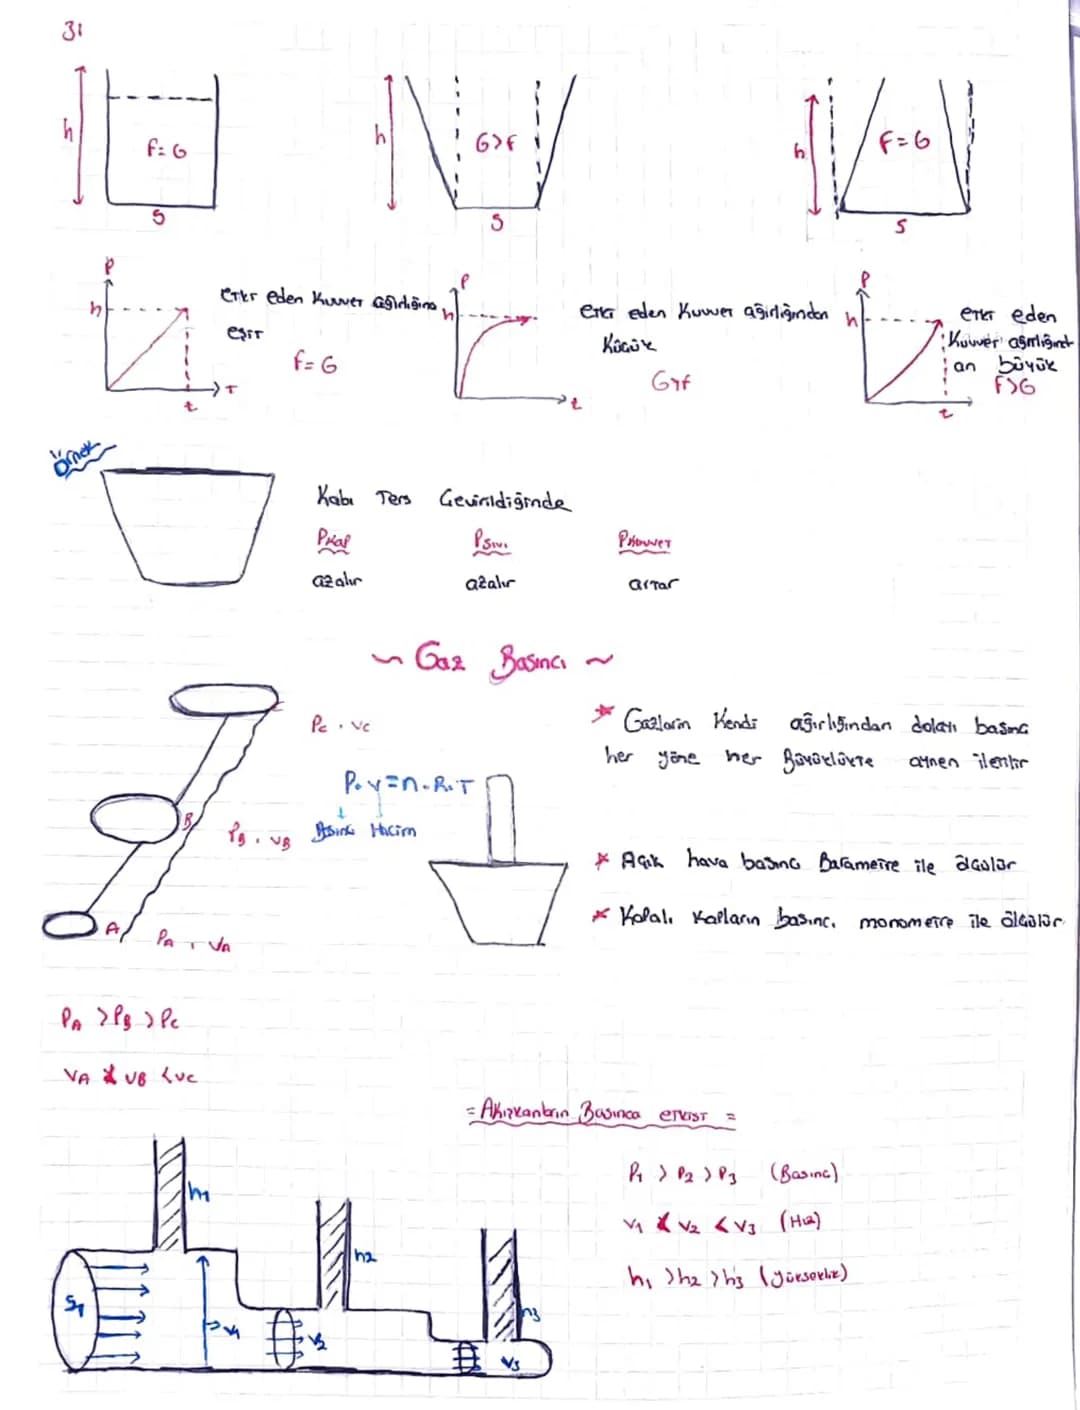 31
h
f=G
S
h
G>f
S
h
F=G
S
P
h
T
t
etki eden kuvvet ağırlığına
eşit
f=G
P
h
t
etki eden kuvvet ağırlığından
küçük
G>f
P
h
t
etki eden
kuvvet ağırlığınd
an büyük
F>G
Örnek
Kabı Ters Çevirildiğinde
Pkap Psıvı Pkuvvet
azalır azalır artar
~ Gaz Basıncı ~
Pc . Vc
P.V=n.R.T
Basınç Hacim
B
PB . VB
A
PA . VA
* Gazların kendi ağırlığından dolayı basınc
her yöne her Büyüklükte aynen iletilir
* Açık hava basıncı Barametre ile ölçülür
* Kapalı kapların basıncı monometre ile ölçülür
PA >PB >Pc
VA < VB <VC
= Akışkanların Basınca etkisi =
P1 > P2 > P3 (Basınc)
V1 < V2 < V3 (Hız)
h1 >h2 >h3 (yükseklik)
h1
h2
h3
S1
V1
V2
V3